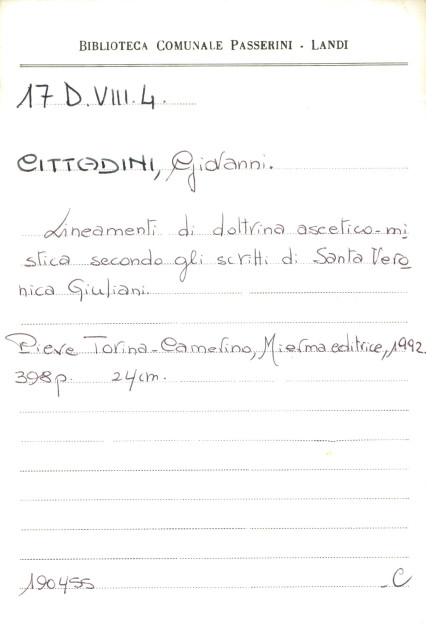 BIBLIOTECA COMUNALE PASSERINI - LANDI
17 D.VIII.4.
CITTADINI, Giovanni.
Lineamenti di dottrina ascetico-mi
stica secondo gli scritti di Santa Vero
nica Giuliani.
Pieve Torina-Camerino, Mierma editrice, 1992.
398p. 24cm.
190455
C